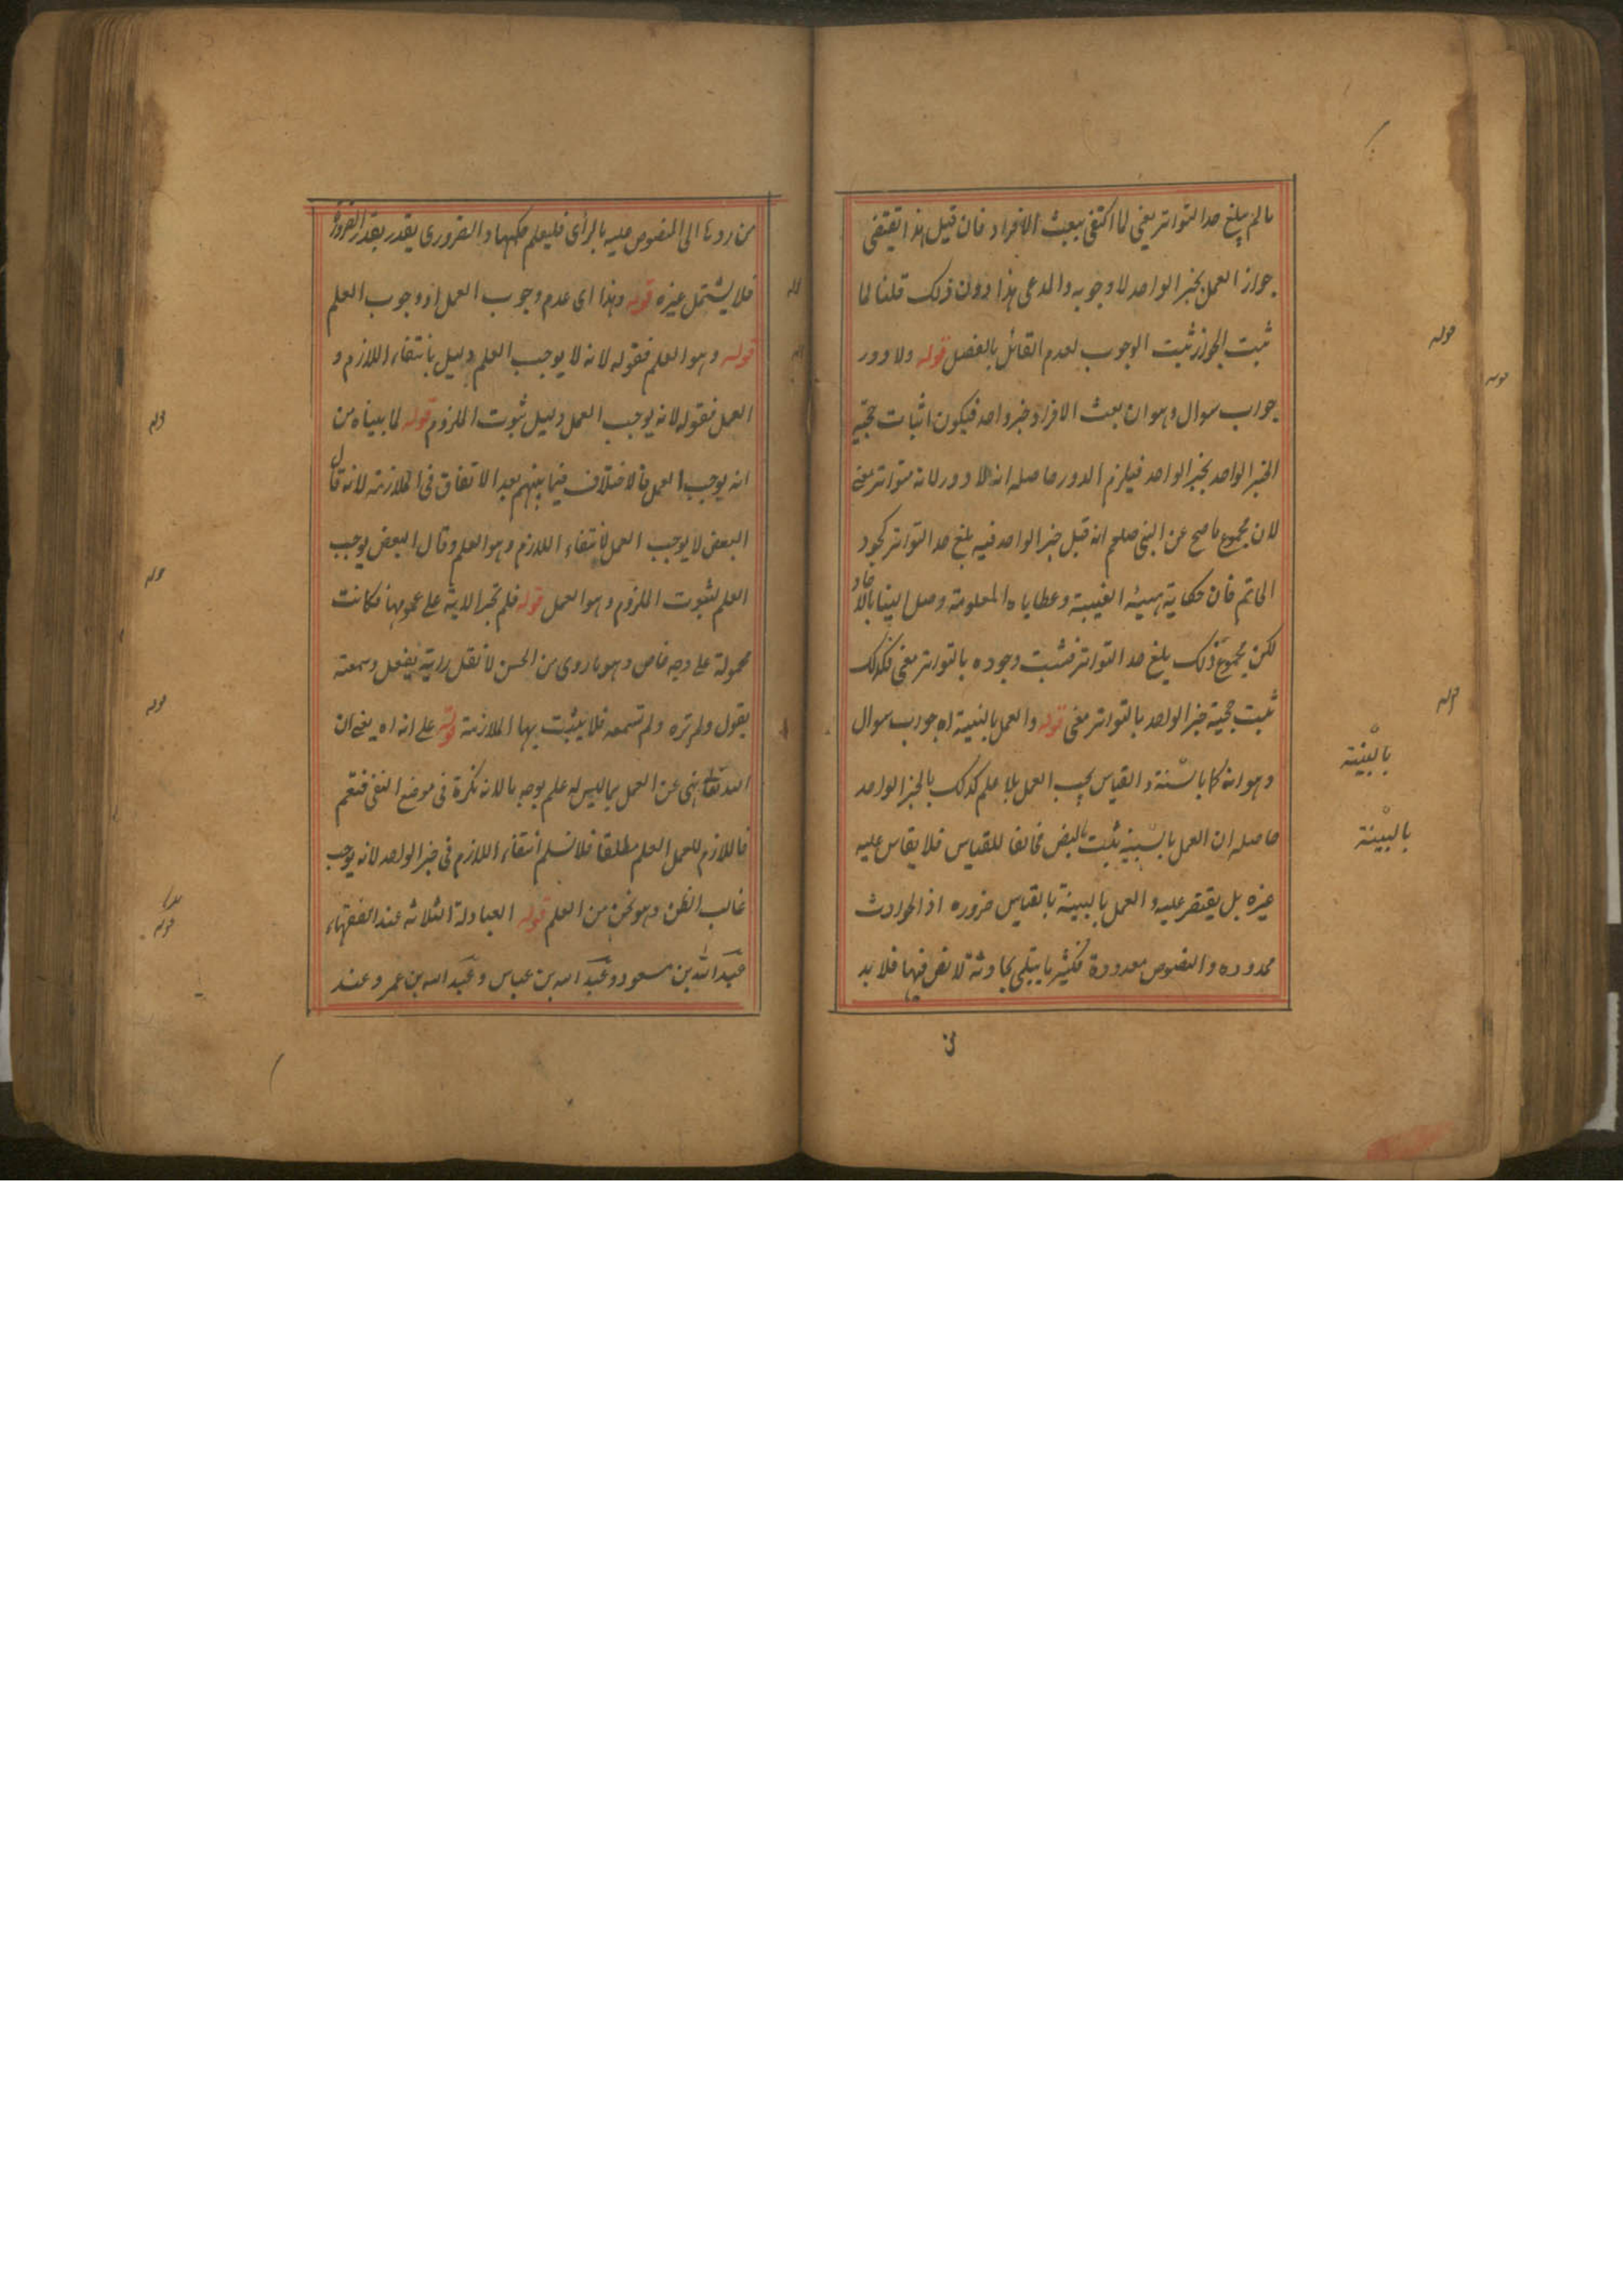 ما لم يبلغ حد التواتر يعنى لما اكتفى ببعث الافراد فان قيل هذا يقتضى
جواز العمل بخبر الواحد لا وجوبه والمدعى هذا دون ذلك قلنا لما
ثبت الجواز ثبت الوجوب لعدم القائل بالفصل قوله ولا دور
جواب سوال وهو ان بعث الافراد خبر واحد فيكون اثبات حجية
الخبر الواحد بخبر الواحد فيلزم الدور حاصله انه لا دور لانه متواتر معنى
لان مجموع ما صح عن النبى صلعم انه قبل خبر الواحد فيه بلغ حد التواتر كجود
الحاتم فان حكاية هيئه الغيبية وعطاياه المعلومة وصل الينا بالاحاد
لكن مجموع ذلك بلغ حد التواتر فثبت وجوده بالتواتر معنى فكذلك
ثبت حجية خبر الواحد بالتواتر معنى قوله والعمل بالبينة اه جواب سوال
وهو انه كما بالسنة والقياس يجب العمل بلا علم كذلك بالخبر الواحد
حاصله ان العمل بالبينة ثبت بالنص مخالفا للقياس فلا يقاس عليه
غيره بل يقتصر عليه والعمل بالبينة بالقياس ضروره اذ الحوادث
ممدوده والنصوص معدودة فكثير ما يبتلى بحادثة لا نص فيها فلا بد
قوله
قوله
قوله
بالبينة
بالبينة
من ردها الى المنصوص عليه بالرأى فليعلم حكمها والضرورى يقدر بقدر الضرورة
فلا يشتمل غيره قوله وهذا اى عدم وجوب العمل اذ وجوب العلم
قوله وهو العلم فقوله لانه لا يوجب العلم دليل بانتفاء اللازم و
العمل فقوله لانه يوجب العمل دليل ثبوت الملزوم قوله لما بيناه من
انه يوجب العمل فالاختلاف فيما بينهم بعد الاتفاق فى الملازمة لانه قال
البعض لا يوجب العمل لانتفاء اللازم وهو العلم وقال البعض يوجب
العلم لثبوت الملزوم وهو العمل قوله فلم تجر الاية على عمومها فكانت
محمولة على وجه خاص وهو ما روى من الحسن لا تقل رايته يفعل وسمعته
يقول ولم تره ولم تسمعه فلا يثبت بها الملازمة قوله على انه اه يعنى ان
الله تعالى نهى عن العمل بما ليس له علم بوجه ما لانه نكرة فى موضع النفى فتعم
فاللازم للعمل العلم مطلقا فلا نسلم انتفاء اللازم فى خبر الواحد لانه يوجب
غالب الظن وهو نحو من العلم قوله العبادلة الثلاثه عند الفقهاء
عبد الله بن مسعود وعبد الله بن عباس وعبد الله بن عمر وعند
قوله
قوله
قوله
قوله